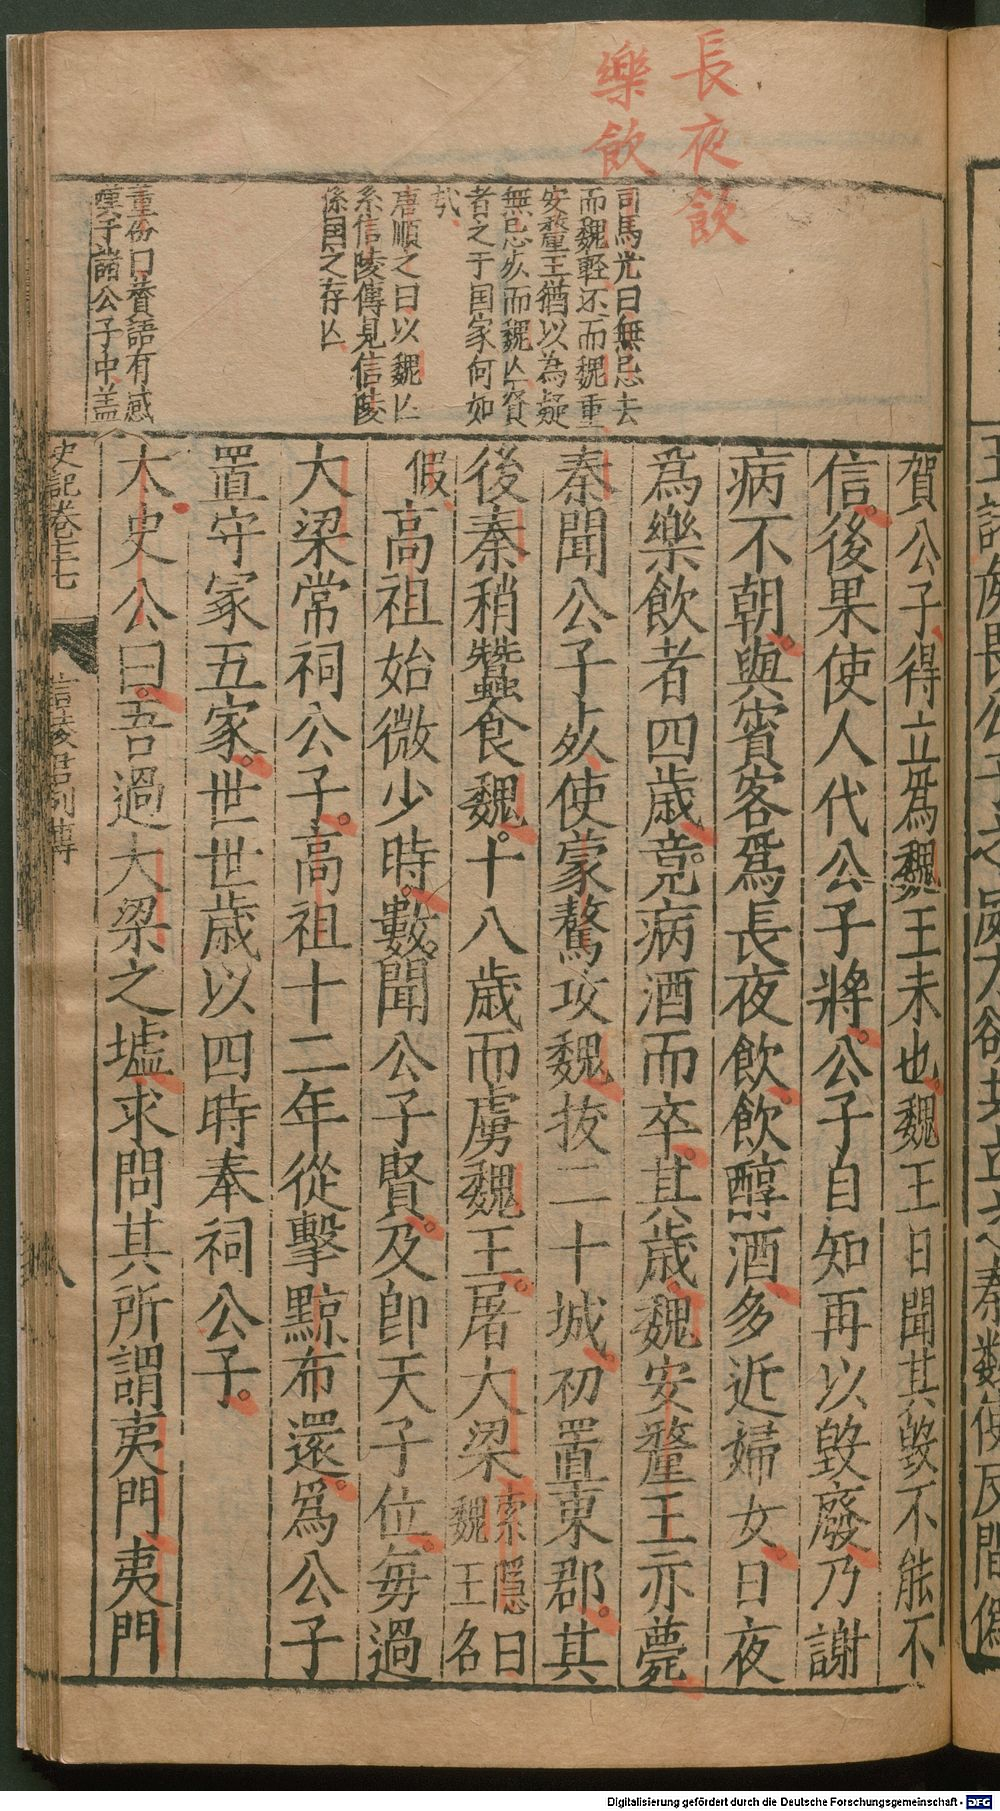 長夜飲
樂飲
司馬光曰無忌去
而魏輕还而魏重
安釐王猶以為疑
無忌歿而魏亾賢
者之于国家何如
㢤
唐順之曰以魏亾
系信陵傳見信陵
係国之存亾
董份曰贊語有感
嘆于諸公子中盖
賀公子得立爲魏王未也魏王日聞其毀不能不
信後果使人代公子將公子自知再以毀廢乃謝
病不朝與賓客爲長夜飲飲醇酒多近婦女日夜
爲樂飲者四歲竟病酒而卒其歲魏安釐王亦薨
秦聞公子歿使蒙驁攻魏拔二十城初置東郡其
後秦稍蠶食魏十八歲而虜魏王屠大梁索隱曰魏王名
假高祖始微少時數聞公子賢及卽天子位每過
大梁常祠公子高祖十二年從擊黥布還爲公子
置守冢五家世世歲以四時奉祠公子
太史公曰吾過大梁之墟求問其所謂夷門夷門
史記卷七十七
信陵君列傳
八
Digitalisierung gefördert durch die Deutsche Forschungsgemeinschaft - DFG